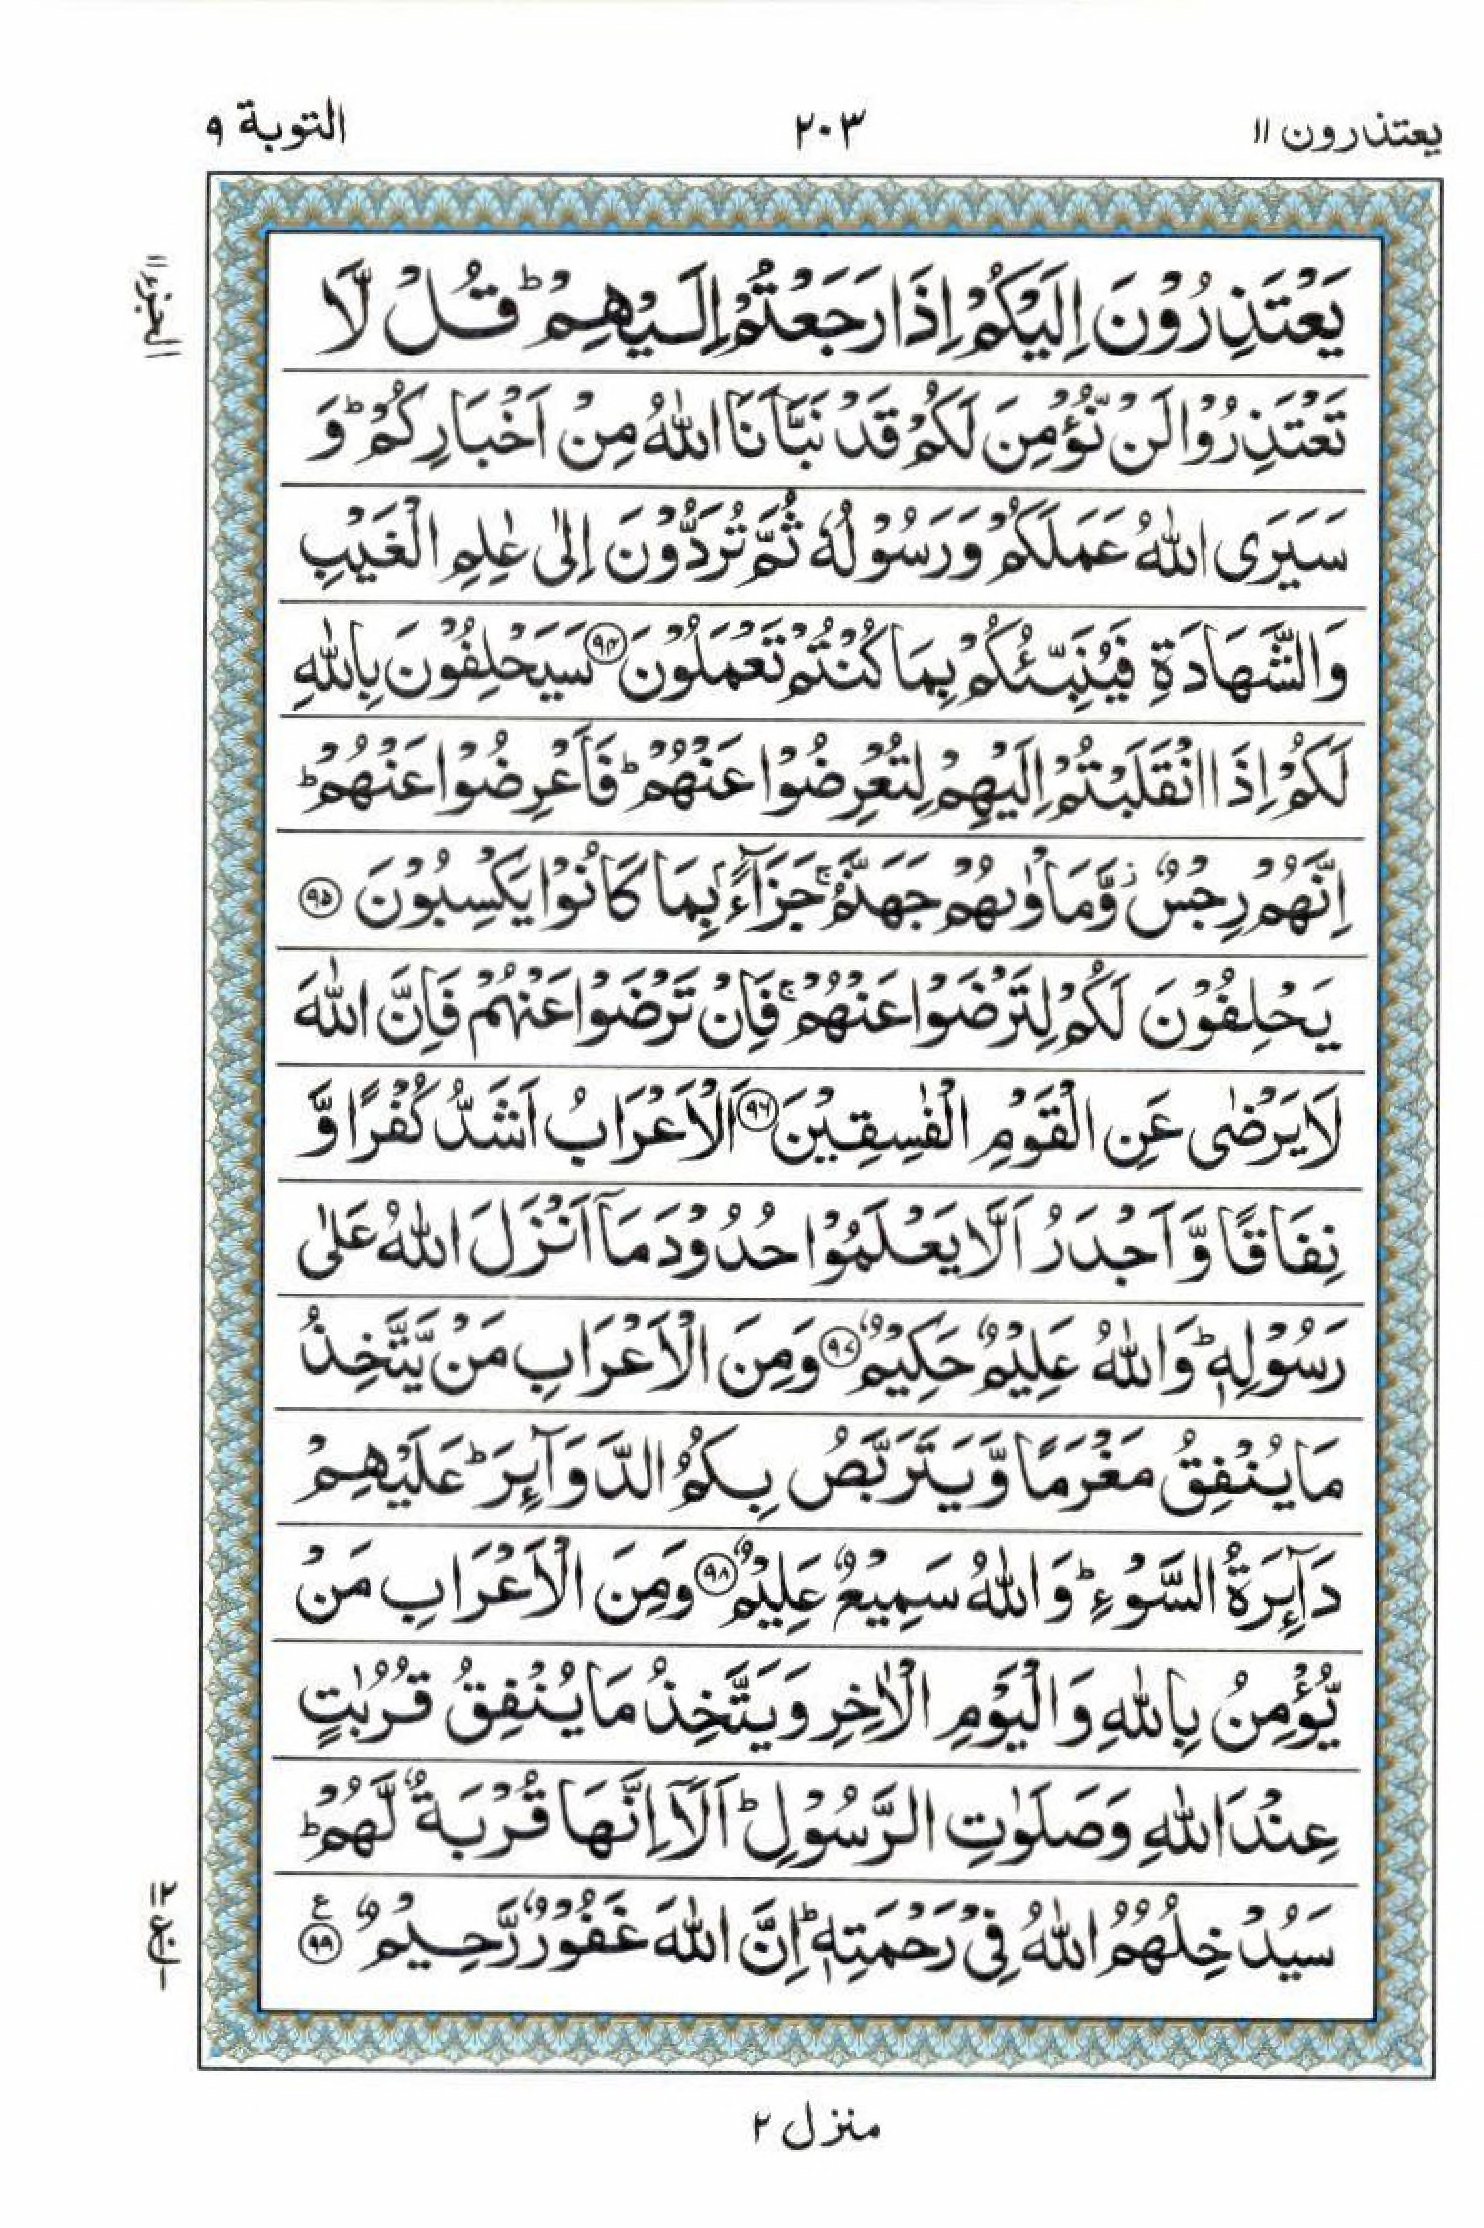 يعتذرون ۱۱
۲۰۳
التوبة ۹
الجزء ۱۱
يَعْتَذِرُوْنَ اِلَيْكُمْ اِذَا رَجَعْتُمْ اِلَيْهِمْ ؕ قُلْ لَّا
تَعْتَذِرُوْا لَنْ نُّؤْمِنَ لَكُمْ قَدْ نَبَّاَنَا اللّٰهُ مِنْ اَخْبَارِكُمْ ؕ وَ
سَيَرَى اللّٰهُ عَمَلَكُمْ وَرَسُوْلُهٗ ثُمَّ تُرَدُّوْنَ اِلٰى عٰلِمِ الْغَيْبِ
وَالشَّهَادَةِ فَيُنَبِّئُكُمْ بِمَا كُنْتُمْ تَعْمَلُوْنَ ۹۴ سَيَحْلِفُوْنَ بِاللّٰهِ
لَكُمْ اِذَا انْقَلَبْتُمْ اِلَيْهِمْ لِتُعْرِضُوْا عَنْهُمْ ؕ فَاَعْرِضُوْا عَنْهُمْ ؕ
اِنَّهُمْ رِجْسٌ ز وَّمَاْوٰىهُمْ جَهَنَّمُ ۚ جَزَآءًۢ بِمَا كَانُوْا يَكْسِبُوْنَ ۹۵
يَحْلِفُوْنَ لَكُمْ لِتَرْضَوْا عَنْهُمْ ۚ فَاِنْ تَرْضَوْا عَنْهُمْ فَاِنَّ اللّٰهَ
لَا يَرْضٰى عَنِ الْقَوْمِ الْفٰسِقِيْنَ ۹۶ اَلْاَعْرَابُ اَشَدُّ كُفْرًا وَّ
نِفَاقًا وَّاَجْدَرُ اَلَّا يَعْلَمُوْا حُدُوْدَ مَآ اَنْزَلَ اللّٰهُ عَلٰى
رَسُوْلِهٖ ؕ وَاللّٰهُ عَلِيْمٌ حَكِيْمٌ ۹۷ وَمِنَ الْاَعْرَابِ مَنْ يَّتَّخِذُ
مَا يُنْفِقُ مَغْرَمًا وَّيَتَرَبَّصُ بِكُمُ الدَّوَآئِرَ ؕ عَلَيْهِمْ
دَآئِرَةُ السَّوْءِ ؕ وَاللّٰهُ سَمِيْعٌ عَلِيْمٌ ۹۸ وَمِنَ الْاَعْرَابِ مَنْ
يُّؤْمِنُ بِاللّٰهِ وَالْيَوْمِ الْاٰخِرِ وَيَتَّخِذُ مَا يُنْفِقُ قُرُبٰتٍ
عِنْدَ اللّٰهِ وَصَلَوٰتِ الرَّسُوْلِ ؕ اَلَآ اِنَّهَا قُرْبَةٌ لَّهُمْ ؕ
سَيُدْخِلُهُمُ اللّٰهُ فِيْ رَحْمَتِهٖ ؕ اِنَّ اللّٰهَ غَفُوْرٌ رَّحِيْمٌ ع ۹۹
۱۲
ع
۱
منزل ۲